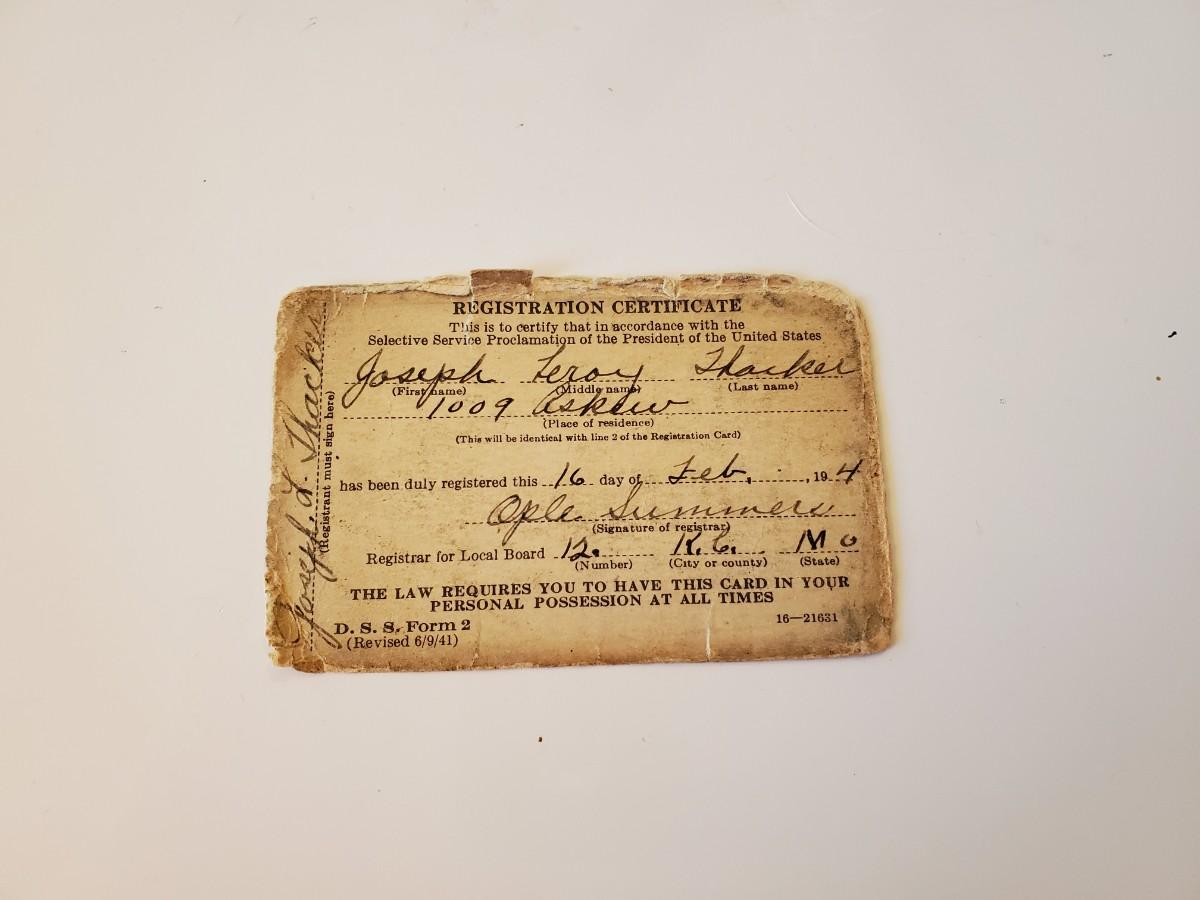 REGISTRATION CERTIFICATE
This is to certify that in accordance with the
Selective Service Proclamation of the President of the United States
Joseph Leroy Thacker
(First name) (Middle name) (Last name)
1009 Askew
(Place of residence)
(This will be identical with line 2 of the Registration Card)
has been duly registered this 16 day of Feb. , 194
Ople Summers
(Signature of registrar)
Registrar for Local Board 12. K.C. Mo
(Number) (City or county) (State)
THE LAW REQUIRES YOU TO HAVE THIS CARD IN YOUR
PERSONAL POSSESSION AT ALL TIMES
D. S. S. Form 2
(Revised 6/9/41)
16—21631
Joseph L. Thacker
(Registrant must sign here)